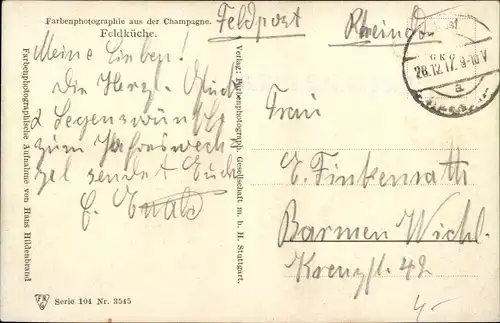 Farbenphotographie aus der Champagne.
Feldküche.
Feldpost
Rheindorf
28.12.17. 9-10 V
a
Meine Lieben!
Die Herzl. Glück
& Segenswünsche
zum Jahreswech
sel sendet Euch
E. Ewald
Farbenphotographische Aufnahme von Hans Hildenbrand
Verlag: Farbenphotograph. Gesellschaft m. b. H. Stuttgart.
Frau
E. Finkenrath
Barmen Wichl.
42
Serie 104 Nr. 3545